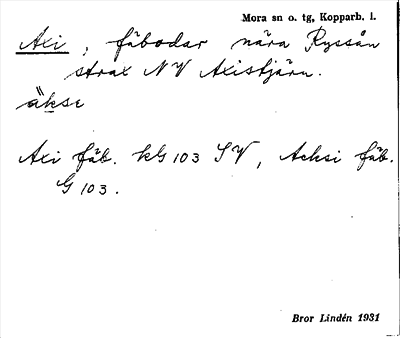 Mora sn o. tg, Kopparb. l.
Axi, fäbodar nära Ryssån
strax NV Axistjärn.
äkse
Axi fäb. kG 103 SV, Acksi fäb.
G 103.
Bror Lindén 1931